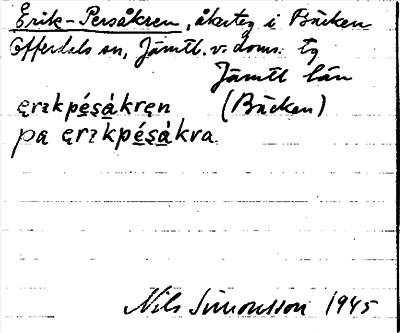 Erik-Persåkren, åkerteg i Bäcken
Offerdals sn, Jämtl. v. doms. tg
Jämtl län
ęrɪkpę́sàkręn (Bäcken)
pa ęrɪkpę́sàkra
Nils Simonsson 1945